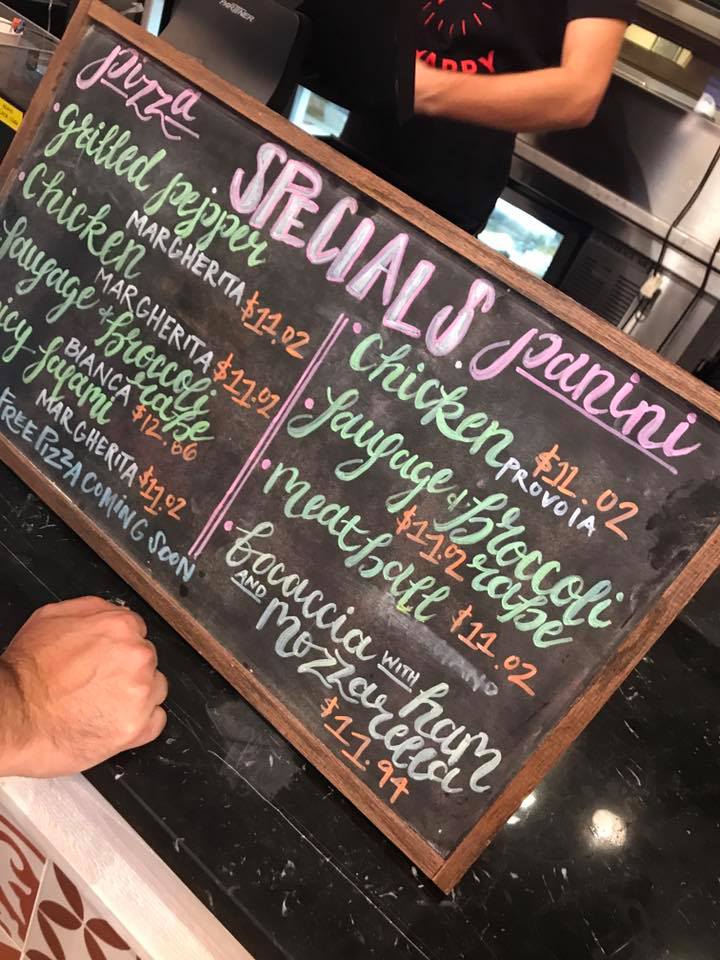 PARTNER
SPECIALS
pizza
grilled pepper
MARGHERITA $11.02
Chicken
MARGHERITA $11.02
Sausage & Broccoli
BIANCA rabe
$12.66
icy Salami
MARGHERITA $11.02
FREE PIZZA COMING SOON
panini
Chicken $11.02
PROVOIA
Sausage & Broccoli
$11.02 rabe
meatball $11.02
bocaccia WITH ham
AND mozzarella
$11.94